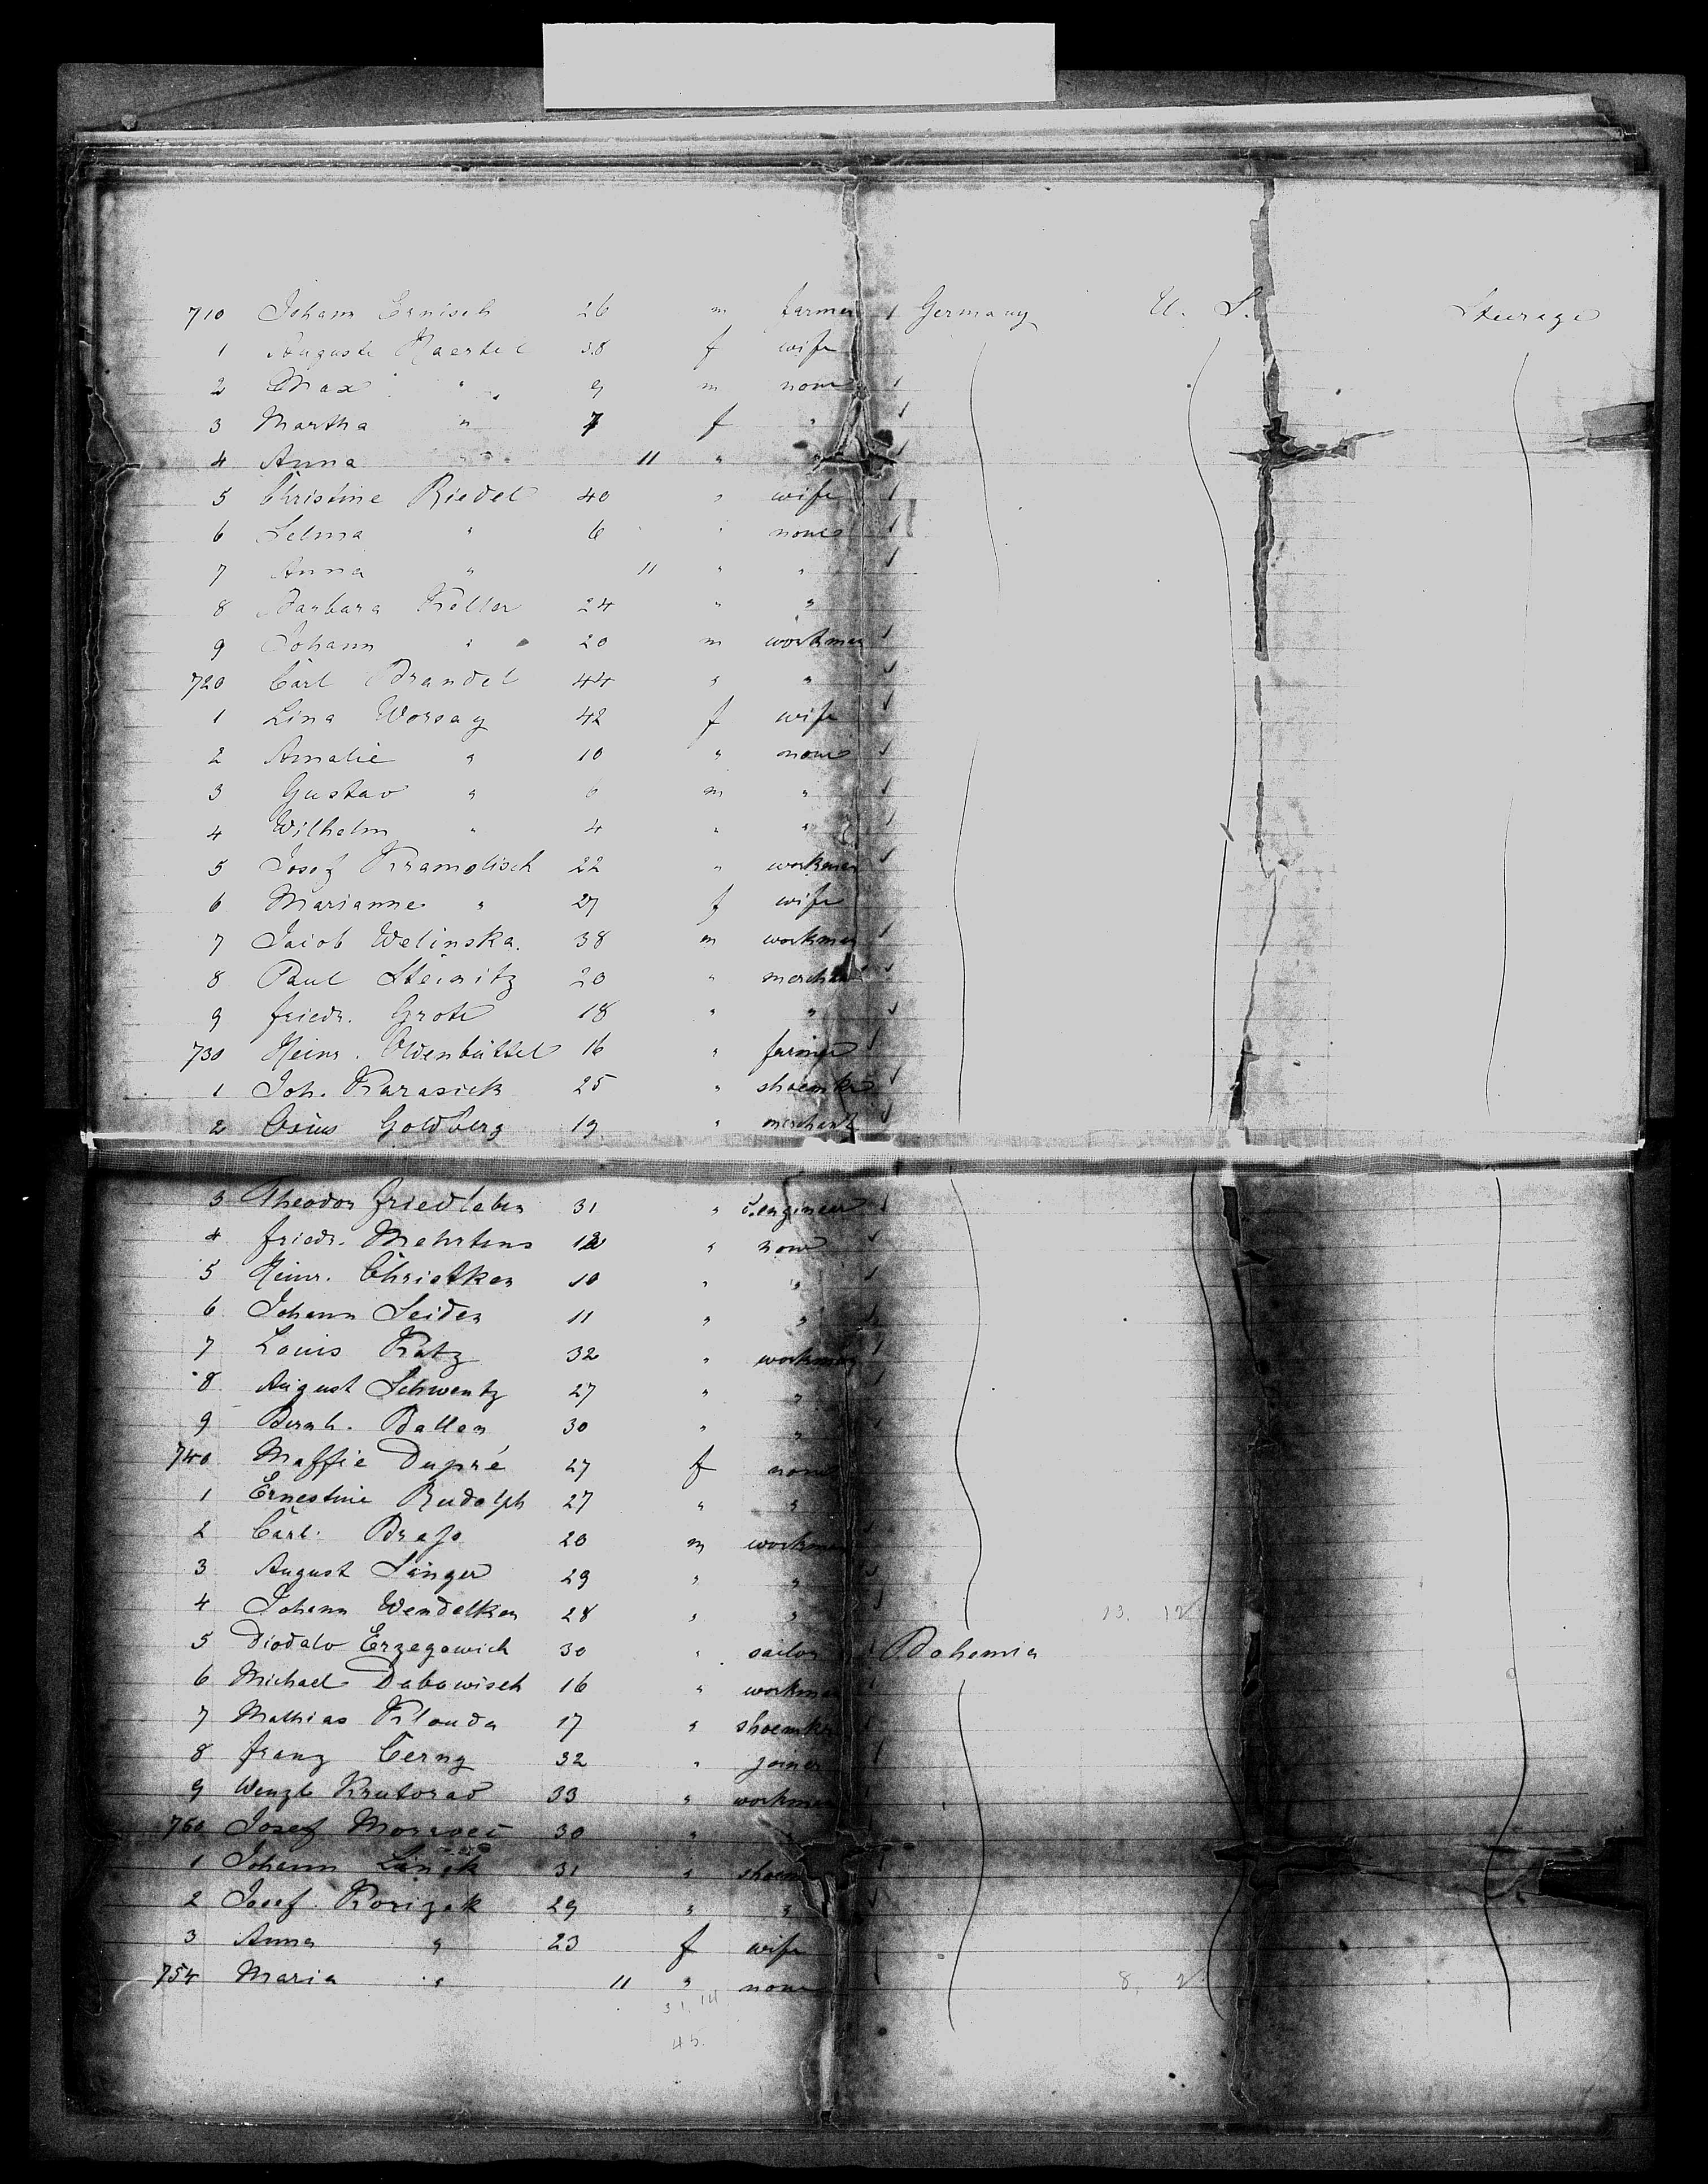 710 Johann Ernisch 26 m farmer Germany U. S. Steerage
1 Auguste Haertel 38 f wife
2 Max " 9 m none
3 Martha " 7 f "
4 Anna " 11 " "
5 Christine Riedel 40 " wife
6 Selma " 6 " none
7 Anna " 11 " "
8 Barbara Keller 24 " "
9 Johann " 20 m workman
720 Carl Brandel 44 " "
1 Lina Worsag 42 f wife
2 Amalie " 10 " none
3 Gustav " 6 m "
4 Wilhelm " 4 " "
5 Josef Kramolisch 22 " workman
6 Marianne " 27 f wife
7 Jacob Welinska 38 m workman
8 Paul Steinitz 20 " merchant
9 Friedr. Grote 18 " "
730 Heinr. Oldenbüttel 16 " farmer
1 Joh. Karasick 25 " shoemkr
2 Goldberg 19 " merchant
3 Theodor Friedleben 31 " engineer
4 Friedr. Mehrtens " none
5 Heinr. 10 " "
6 Johann Seider 11 " "
7 Louis Katz 32 " workman
8 August Schwentz 27 " "
9 Bernh. Ballen 30 " "
740 Maffie Dupré 27 f none
1 Ernestine Rudolph 27 " "
2 Carl 20 m workman
3 August Sänger 29 " "
4 Johann Wendelken 28 " " 13. 12
5 Diodato Erzegowich 30 " sailor Bohemia
6 Michael Dabawisch 16 " workman
7 Mathias Klouda 17 " shoemkr
8 Franz Cerny 32 " joiner
9 Wenzl Krutorad 33 " workman
760 Josef Moravec 30 " "
1 Johann 31 " shoem
2 Josef Korizek 29 " "
3 Anna " 23 f wife
754 Maria " 11 " none 8. 2
31. 14
45.